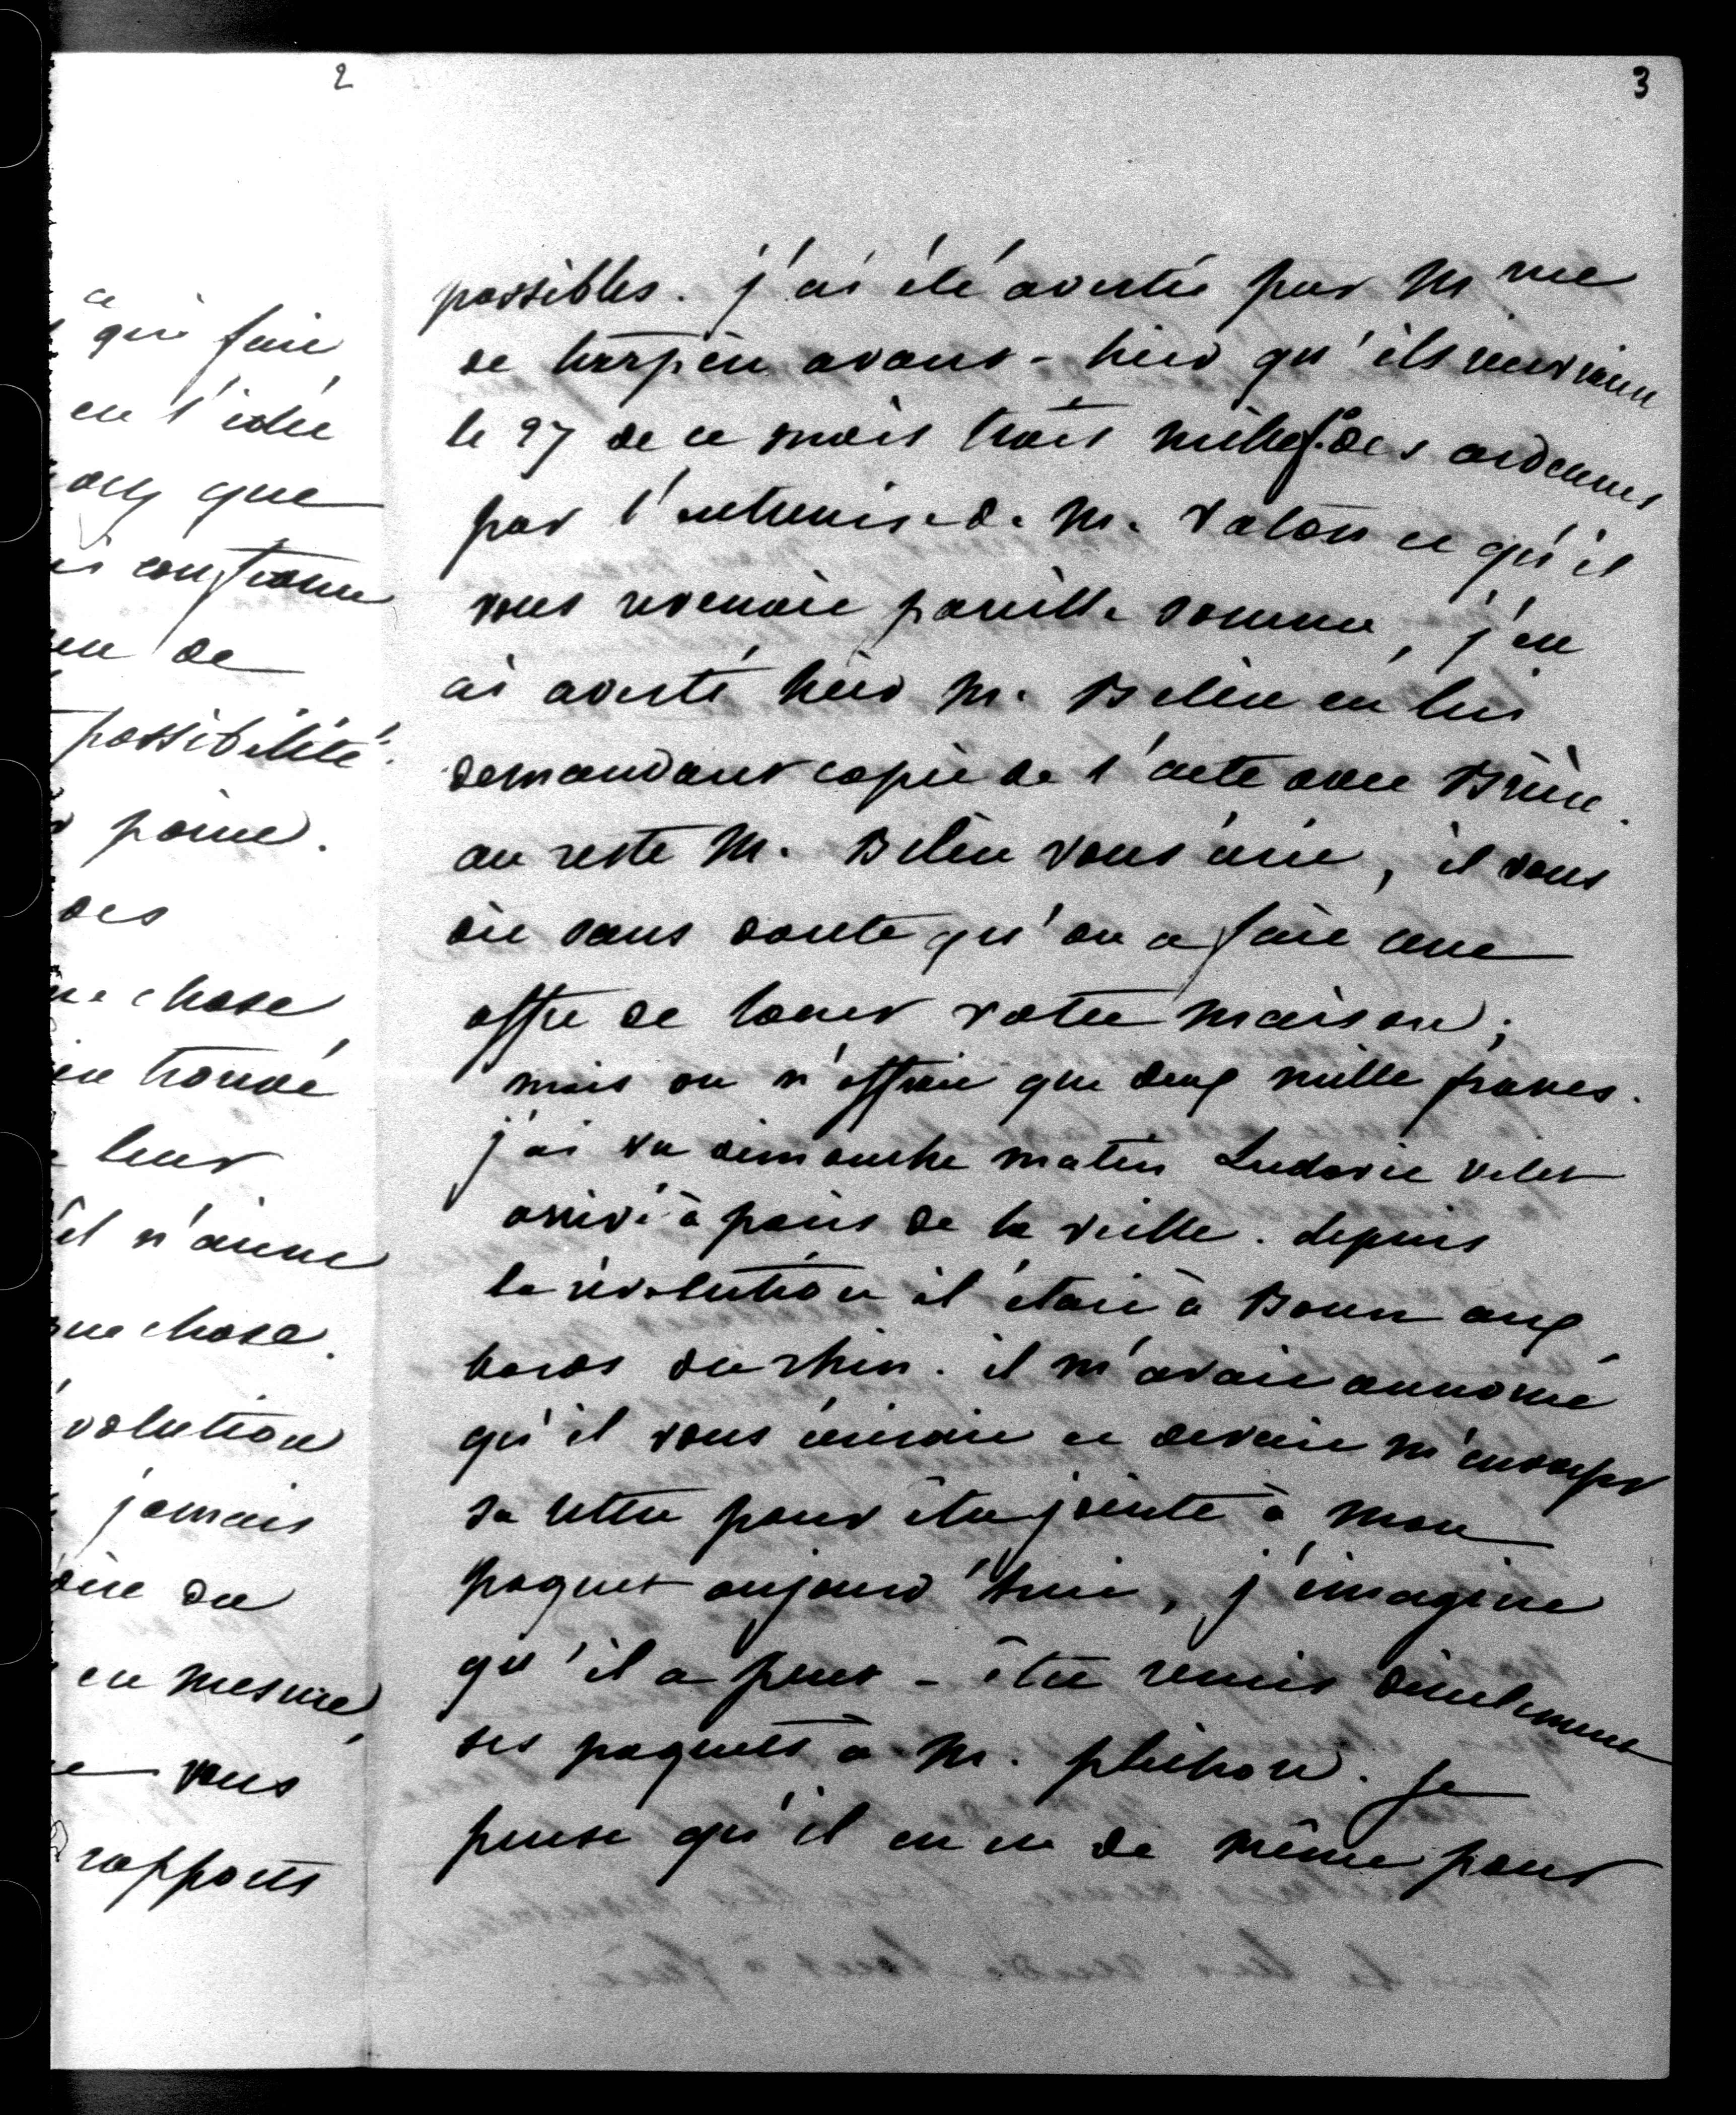 2
ce
qui fait
en l'idée
que
constamm
en de
possibilité.
point.
des
chose
trouvé
leur
il n'aime
que chose.
volution
jamais
dire du
en mesure,
vous
rapports
3
possibles. j'ai été avertie par Mme
de avant-hier qu'il reviennent
le 27 de ce mois trois mille f. des ardennes
par l'entremise de M. et qu'il
vous revenait pareille somme, j'en
ai averti hier M. Belin en lui
demandant copie de l'acte avec
au reste M. Belin vous écrit, il vous
dit sans doute qu'on a fait une
offre de louer votre maison;
mais on n'offrait que deux mille francs.
j'ai vu dimanche matin Ludovic
arrivé à paris de la veille. depuis
la révolution il était à Bonn aux
bords du rhin. il m'avait annoncé
qu'il vous écrirait et devait m'envoyer
sa lettre pour être jointe à mon
paquet aujourd'hui, j'imagine
qu'il a peut-être remis directement
ses paquets à M. pléchon. je
pense qu'il en est de même pour